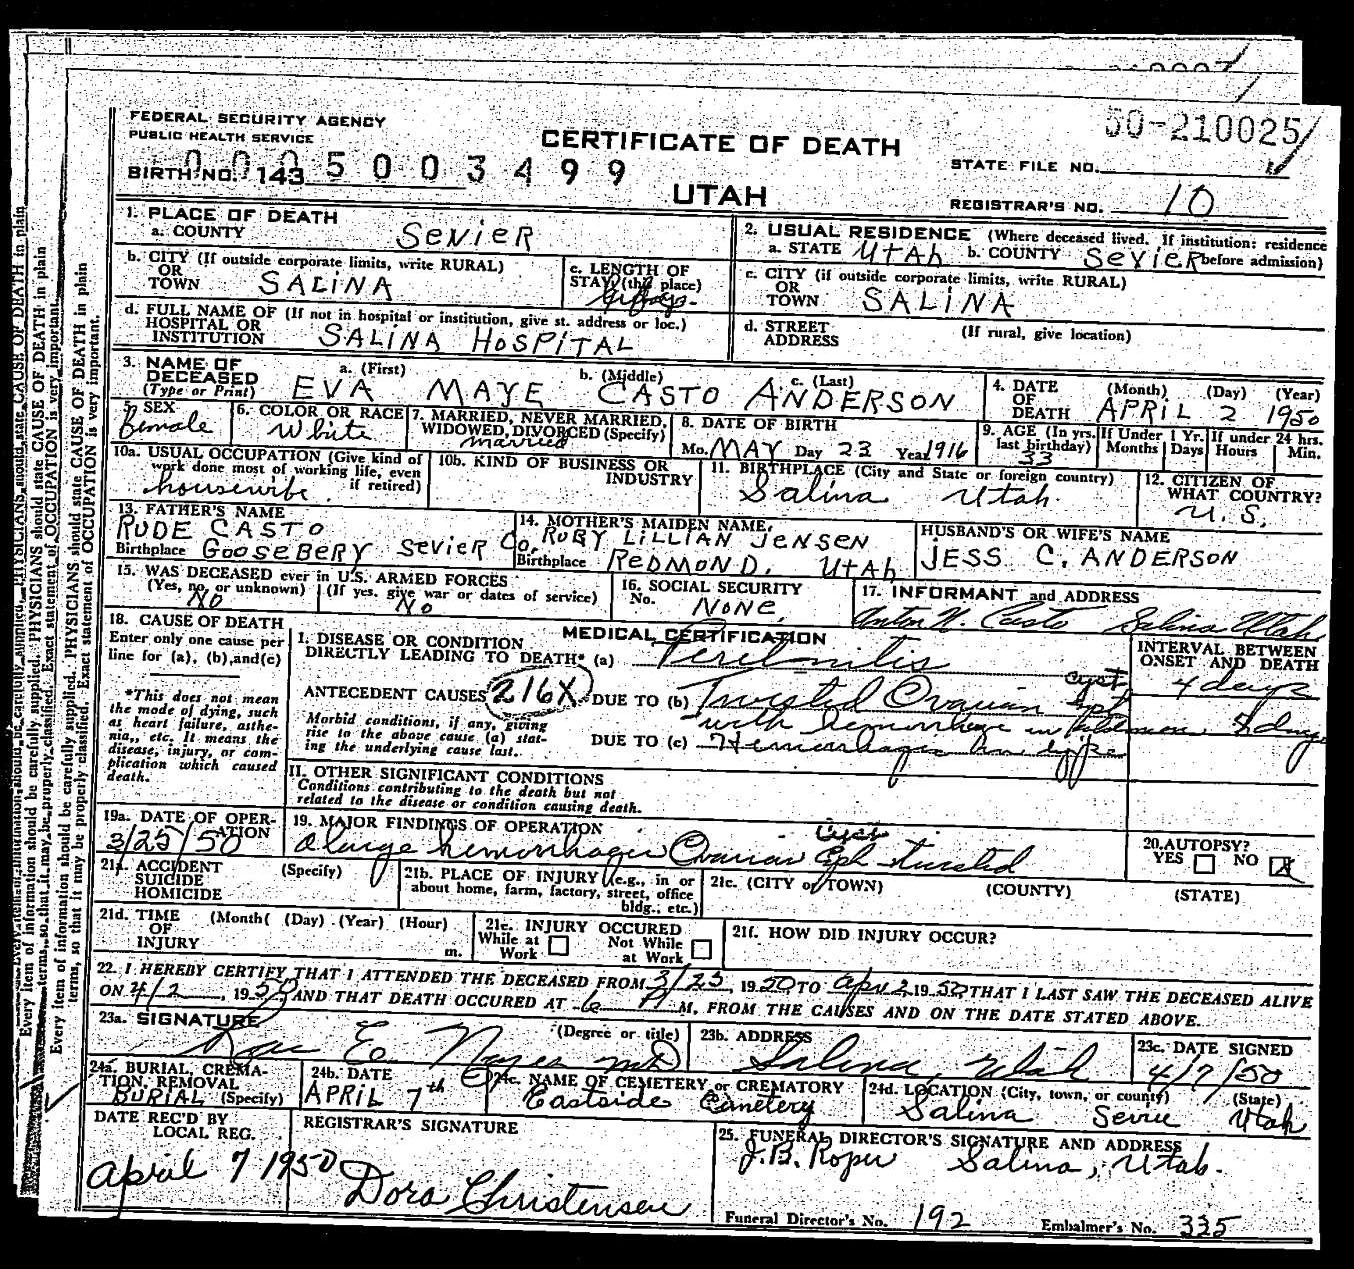 FEDERAL SECURITY AGENCY
PUBLIC HEALTH SERVICE
CERTIFICATE OF DEATH
UTAH
50-210025
STATE FILE NO.
BIRTH NO. 143 0005003499
REGISTRAR'S NO. 10
1. PLACE OF DEATH
a. COUNTY SEVIER
2. USUAL RESIDENCE (Where deceased lived. If institution: residence before admission)
a. STATE UTAH b. COUNTY SEVIER
b. CITY (If outside corporate limits, write RURAL)
OR TOWN SALINA
c. LENGTH OF STAY (this place)
c. CITY (if outside corporate limits, write RURAL)
OR TOWN SALINA
d. FULL NAME OF (If not in hospital or institution, give st. address or loc.)
HOSPITAL OR INSTITUTION SALINA HOSPITAL
d. STREET ADDRESS (If rural, give location)
3. NAME OF DECEASED (Type or Print)
a. (First) b. (Middle) c. (Last)
EVA MAYE CASTO ANDERSON
4. DATE OF DEATH (Month) (Day) (Year)
APRIL 2 1950
5. SEX Female
6. COLOR OR RACE White
7. MARRIED, NEVER MARRIED, WIDOWED, DIVORCED (Specify) married
8. DATE OF BIRTH
Mo. MAY Day 23 Year 1916
9. AGE (In yrs. last birthday) 33
If Under 1 Yr. Months Days
If under 24 hrs. Hours Min.
10a. USUAL OCCUPATION (Give kind of work done most of working life, even if retired)
housewife
10b. KIND OF BUSINESS OR INDUSTRY
11. BIRTHPLACE (City and State or foreign country)
Salina Utah.
12. CITIZEN OF WHAT COUNTRY?
U.S.
13. FATHER'S NAME
RUDE CASTO
Birthplace GOOSEBERY SEVIER Co.
14. MOTHER'S MAIDEN NAME
RUBY LILLIAN JENSEN
Birthplace REDMOND, UTAH
HUSBAND'S OR WIFE'S NAME
JESS C. ANDERSON
15. WAS DECEASED ever in U.S. ARMED FORCES
(Yes, no, or unknown) (If yes, give war or dates of service)
NO NO
16. SOCIAL SECURITY No. NONE
17. INFORMANT and ADDRESS
Anton N. Casto Salina Utah
18. CAUSE OF DEATH
Enter only one cause per line for (a), (b), and (c)
*This does not mean the mode of dying, such as heart failure, asthenia, etc. It means the disease, injury, or complication which caused death.
MEDICAL CERTIFICATION
I. DISEASE OR CONDITION DIRECTLY LEADING TO DEATH* (a) Peritonitis
ANTECEDENT CAUSES 216X
DUE TO (b) Twisted Ovarian cyst
with hemorrhage in
Morbid conditions, if any, giving rise to the above cause (a) stating the underlying cause last.
DUE TO (c) Hemorrhage
INTERVAL BETWEEN ONSET AND DEATH
4 days
II. OTHER SIGNIFICANT CONDITIONS
Conditions contributing to the death but not related to the disease or condition causing death.
19a. DATE OF OPERATION
3/25/50
19. MAJOR FINDINGS OF OPERATION
a large hemorrhagic Ovarian Cyst twisted
20. AUTOPSY?
YES NO X
21a. ACCIDENT SUICIDE HOMICIDE (Specify)
21b. PLACE OF INJURY (e.g., in or about home, farm, factory, street, office bldg., etc.)
21c. (CITY or TOWN) (COUNTY) (STATE)
21d. TIME OF INJURY (Month) (Day) (Year) (Hour) m.
21e. INJURY OCCURED
While at Work Not While at Work
21f. HOW DID INJURY OCCUR?
22. I HEREBY CERTIFY THAT I ATTENDED THE DECEASED FROM 3/25, 1950 TO Apr 2 1950 THAT I LAST SAW THE DECEASED ALIVE
ON 4/2, 1950 AND THAT DEATH OCCURED AT 6 P M, FROM THE CAUSES AND ON THE DATE STATED ABOVE.
23a. SIGNATURE (Degree or title)
Rae E. Noyes MD
23b. ADDRESS
Salina, Utah
23c. DATE SIGNED
4/7/50
24a. BURIAL, CREMATION, REMOVAL (Specify)
BURIAL
24b. DATE
APRIL 7th
24c. NAME OF CEMETERY or CREMATORY
Eastside Cemetery
24d. LOCATION (City, town, or county) (State)
Salina Sevier Utah
DATE REC'D BY LOCAL REG.
April 7 1950
REGISTRAR'S SIGNATURE
Dora Christensen
25. FUNERAL DIRECTOR'S SIGNATURE AND ADDRESS
J.B. Roper Salina, Utah.
Funeral Director's No. 192 Embalmer's No. 335
Every item of information should be carefully supplied. PHYSICIANS should state CAUSE OF DEATH in plain
terms, so that it may be properly classified. Exact statement of OCCUPATION is very important.